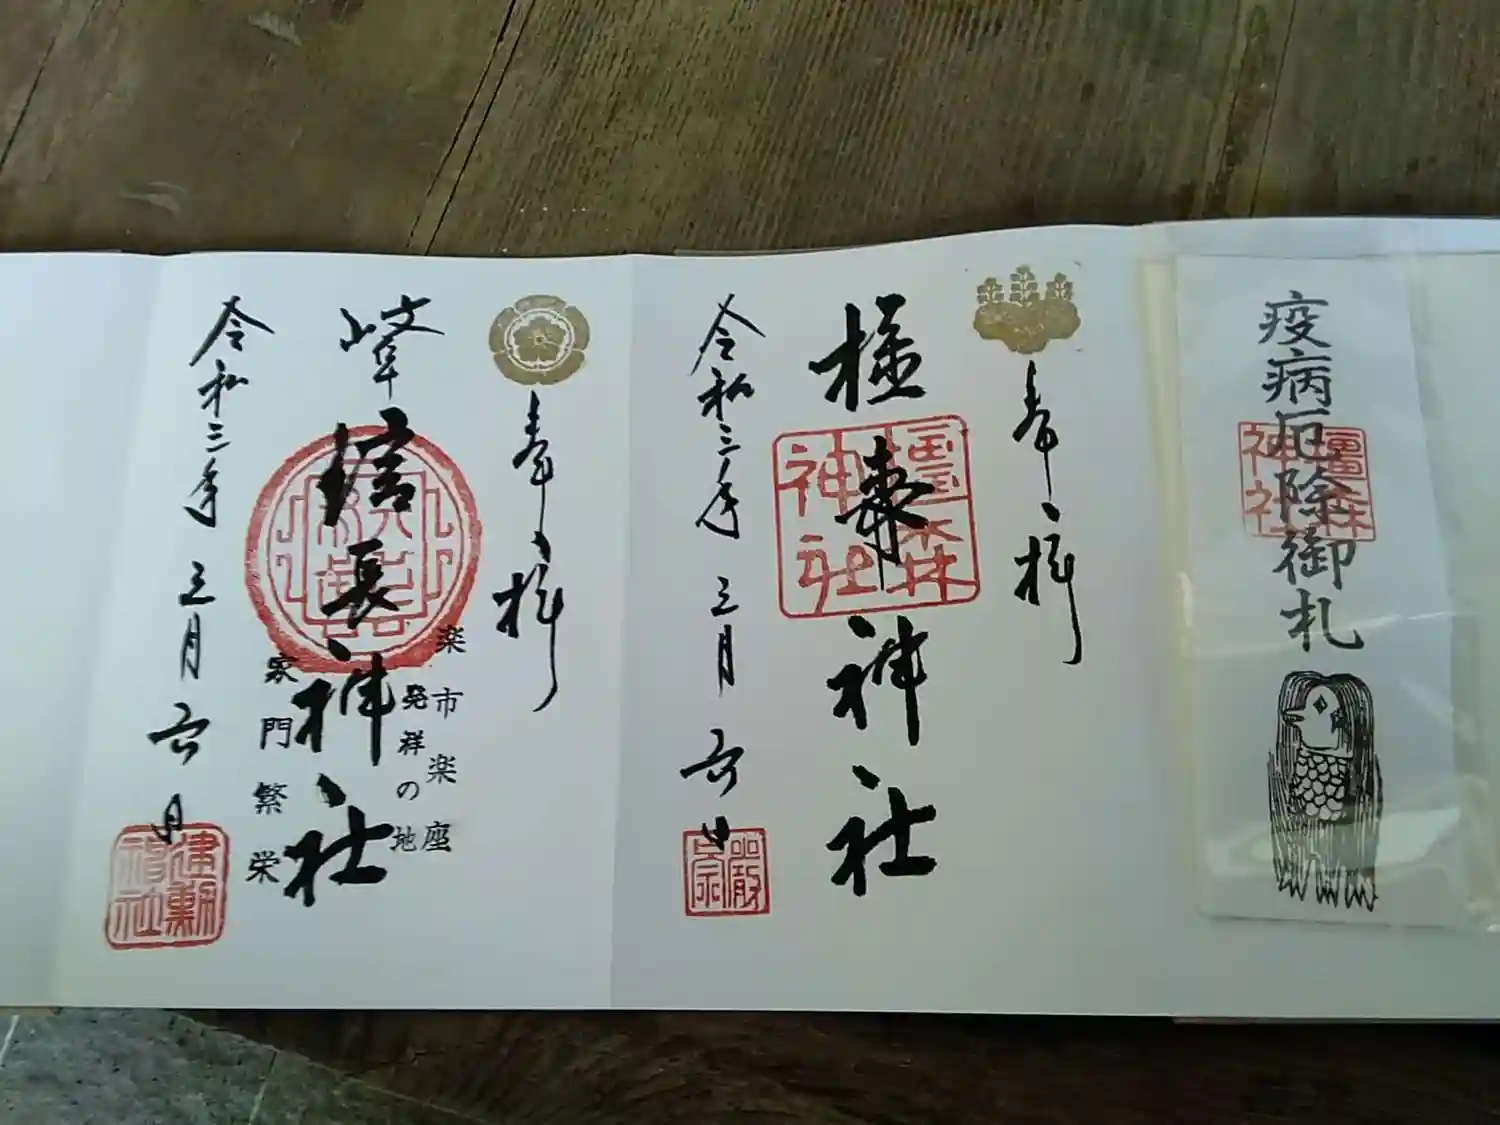 疫病厄除御札
橿森
神社
奉拝
橿森神社
橿森
神社
令和三年三月六日
奉拝
岐阜信長神社
楽市楽座
発祥の地
家門繁栄
令和三年三月六日
建勲
神社